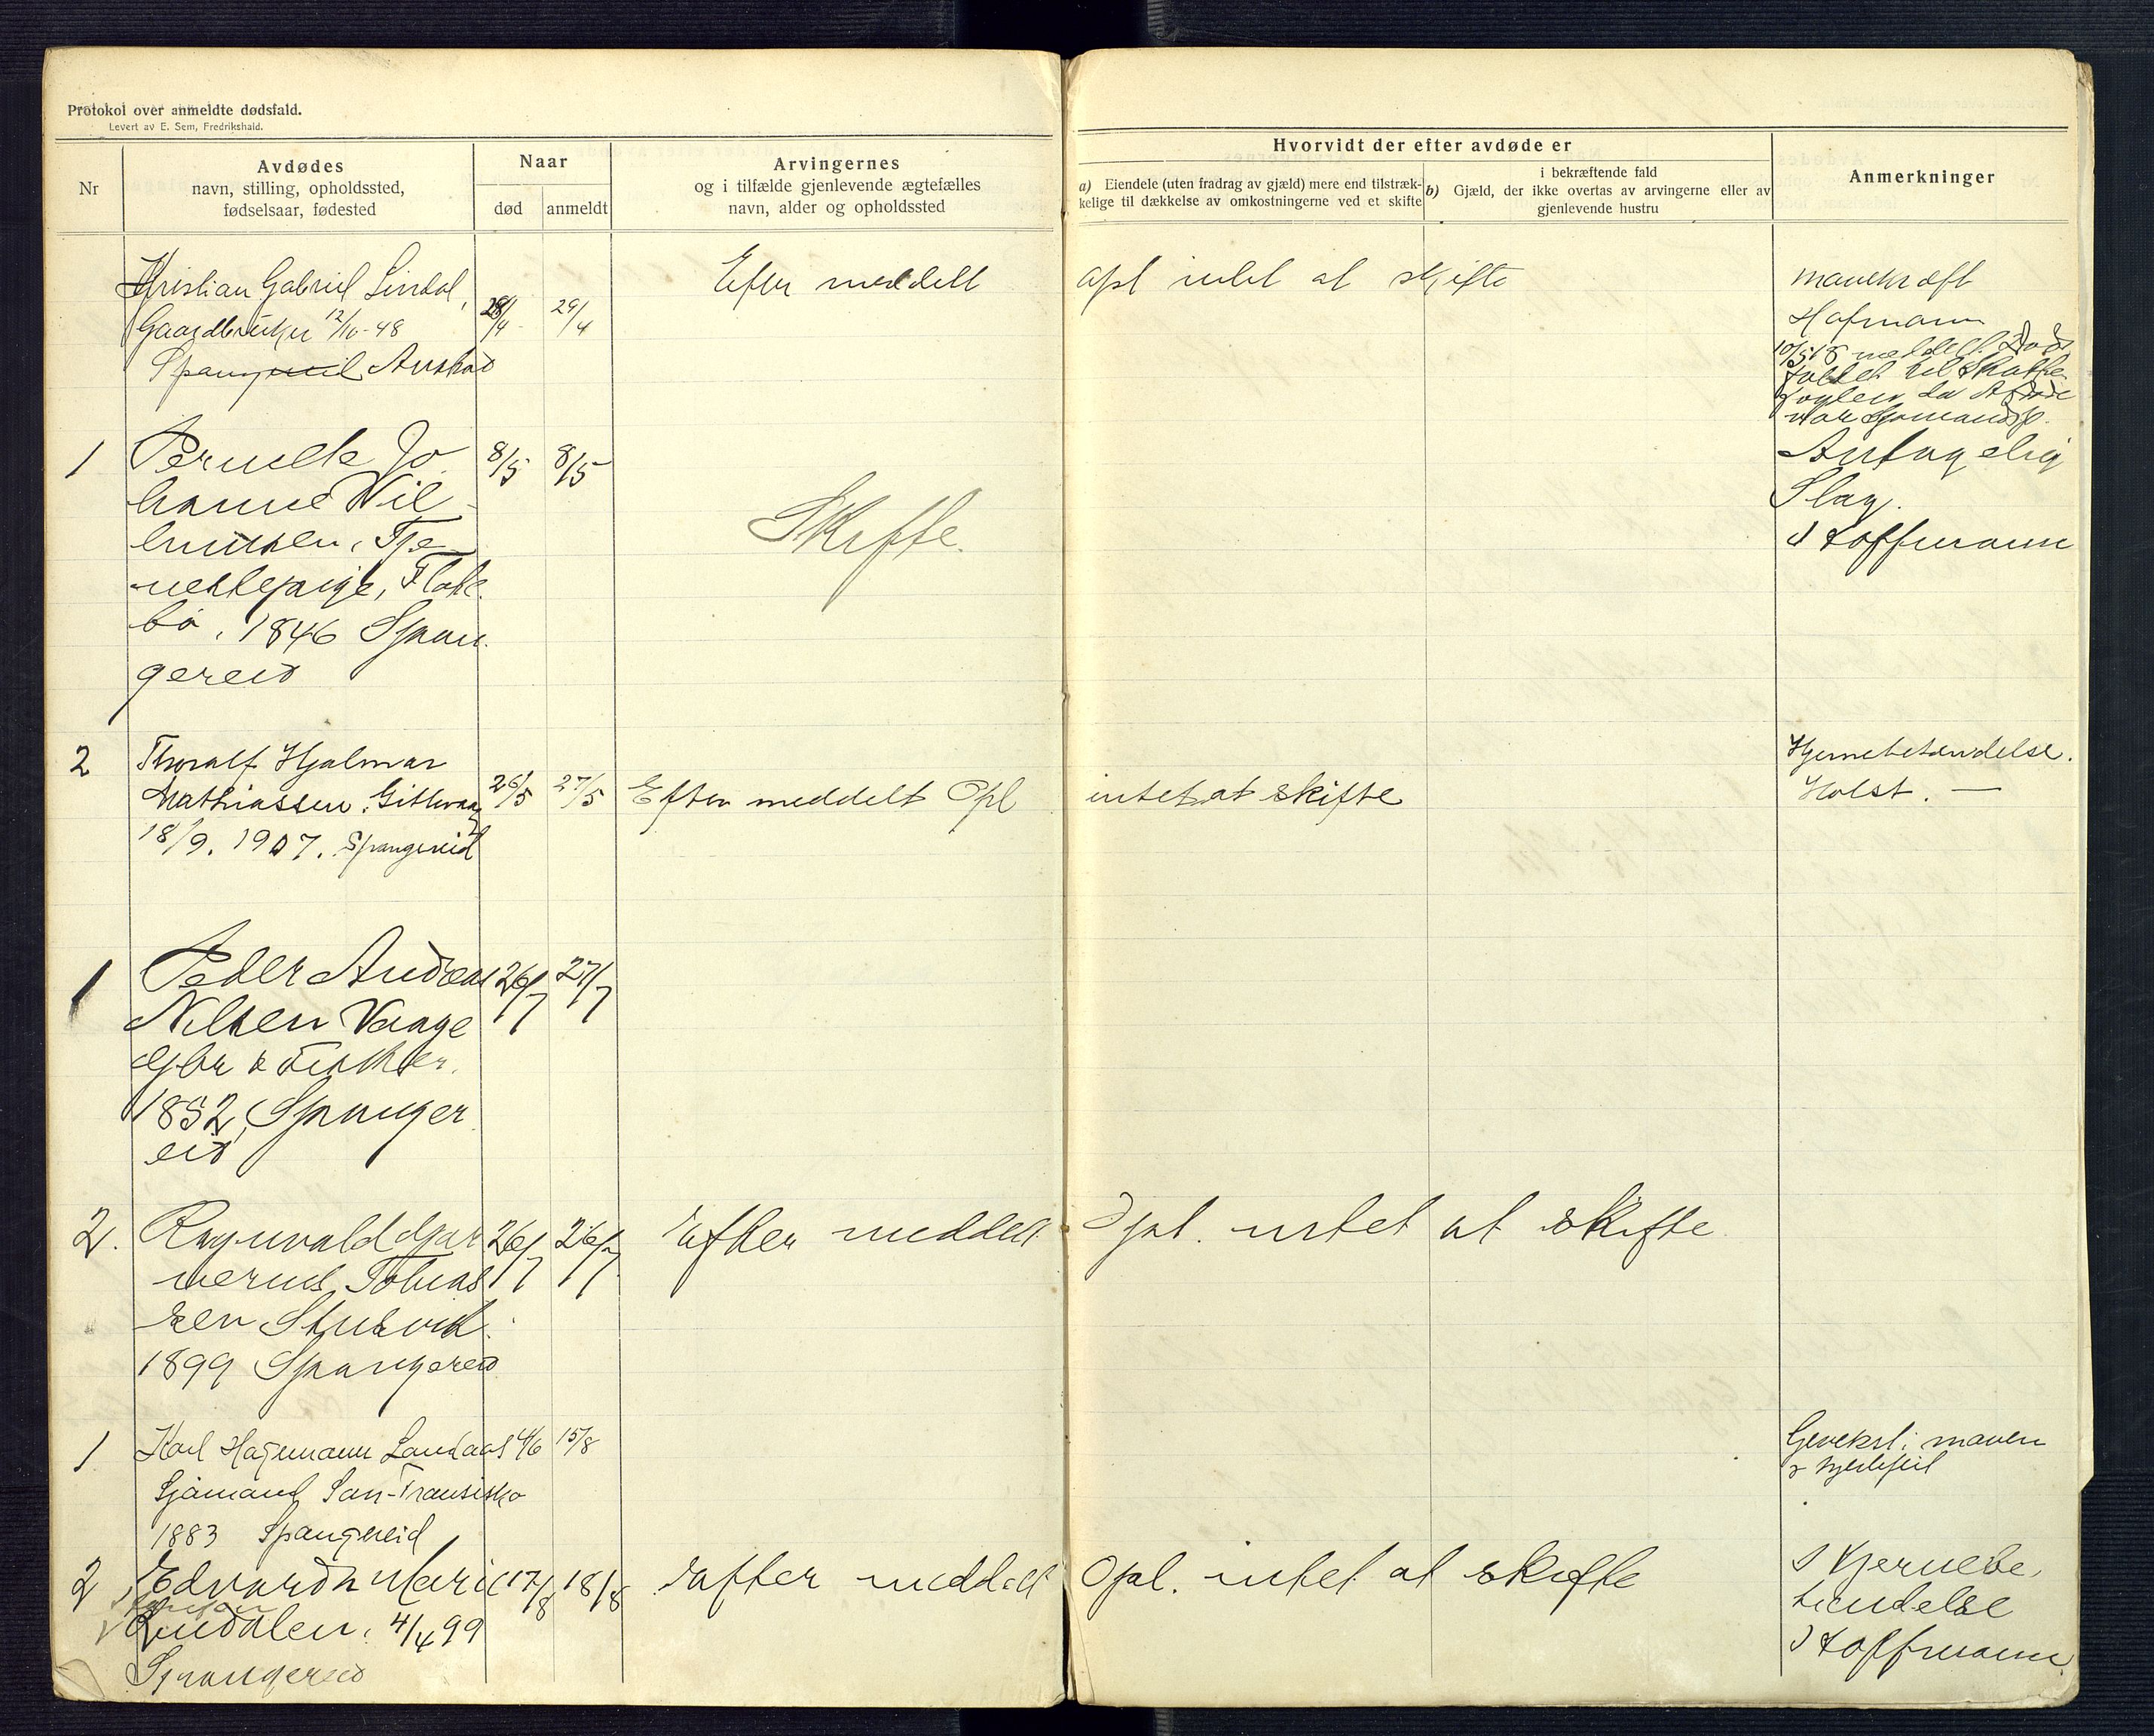 Protokol over anmeldte dødsfald.
Levert av E. Sem, Fredrikshald.
Nr
Avdødes
navn, stilling, opholdssted,
fødselsaar, fødested
Naar
død
anmeldt
Arvingernes
og i tilfælde gjenlevende ægtefælles
navn, alder og opholdssted
Hvorvidt der efter avdøde er
a) Eiendele (uten fradrag av gjæld) mere end tilstræk-
kelige til dækkelse av omkostningerne ved et skifte
i bekræftende fald
b) Gjæld, der ikke overtas av arvingerne eller av
gjenlevende hustru
Anmerkninger
Kristian Gabriel Lindal,
Gaardbruker 12/10-48
28/4 29/4
Efter meddelt opl intet at skifte
Mavekræft
Hofmann
10/5 18 meddelt Døds
faldet til Skatte
fogden da Afdøde
var
1 Pernelle Jo
hanne Vil
helmsen, Tje
nestepige,
1846 Span
gereid
8/5 8/5
Skifte.
Antagelig
Slag.
Hoffmann
2 Thoralf Hjalmar
Mathiassen,
18/9. 1907. Spangereid
26/5 27/5
Efter meddelt Opl intet at skifte
Hjernebetændelse.
Holst. —
1 Peder Andreas
Nilsen Vaage
Gbr & Fisker.
1852, Spanger
eid
26/7 27/7
2. Ragnvald Gun
nerius Tobias
sen Stusvik.
1899 Spangereid
26/7 26/7
Efter meddelt Opl. intet at skifte
1 Karl Hagemann Landaas
Sjømand San-Fransisko
1883 Spangereid
4/6 15/8
Gevekst i maven
& hjertefeil
2 Edvardn Marie
Lindalen, 4/4 99
Spangereid
17/8 18/8
Efter meddelt Opl. intet at skifte
Hjernebe,
tændelse
Hoffmann